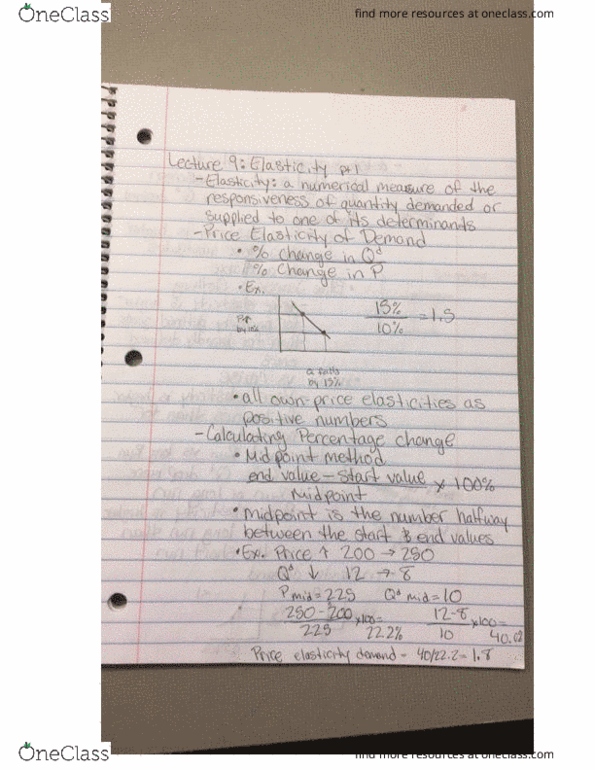 OneClass
find more resources at oneclass.com
Lecture 9: Elasticity pt 1
- Elasticity: a numerical measure of the
responsiveness of quantity demanded or
supplied to one of its determinants
- Price Elasticity of Demand
• % change in Qd
% Change in P
• Ex.
15%
10%
= 1.5
by 15%
• all own-price elasticities as
positive numbers
- Calculating Percentage change
• Midpoint method
end value - start value x 100%
Midpoint
• midpoint is the number halfway
between the start & end values
• Ex. Price ↑ 200 → 250
Qd ↓ 12 → 8
P mid = 225 Qd mid = 10
250 - 200 x100 = 12-8 x100 =
225 22.2% 10 40.0%
Price elasticity demand = 40/22.2 = 1.8
OneClass
find more resources at oneclass.com